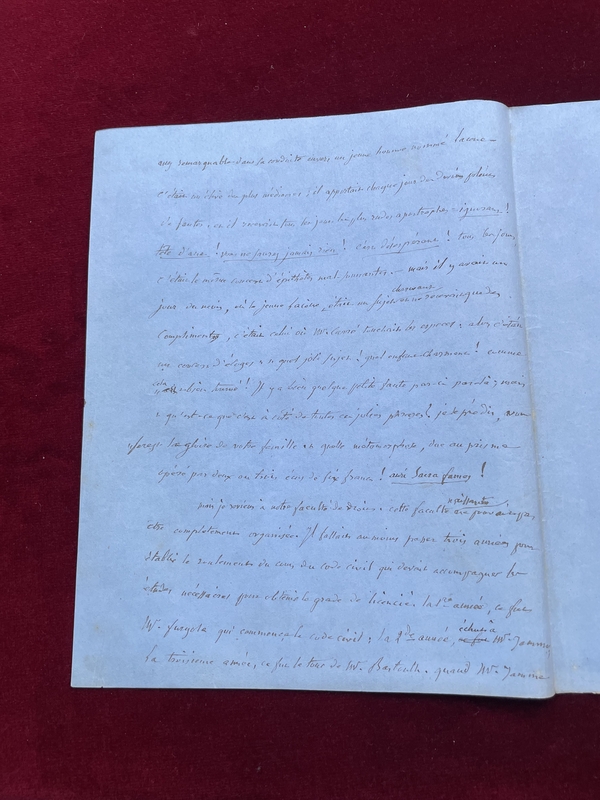 assez remarquable dans sa conduite envers un jeune homme nommé Lacone -
c'était un élève des plus médiocres; il apportait chaque jour des devoirs pleins
de fautes. on il recevait tous les jours les plus rudes apostrophes. ignorant!
tête d'âne! vous ne saurez jamais rien! c'est désespérant! tous les jours
c'était le même concours d'épithètes mal sonnantes. mais il y avait un
jour du mois, où le jeune était un sujet charmant on ne recevait que des
compliments, c'était celui où Mr touchait les espèces; alors c'était
un concours d'éloges « quel joli sujet! quel enfant charmant! comme
cela est bien tourné! Il y a bien quelque petite faute par-ci par-là; mais
» qu'est-ce que c'est à côté de toutes ces jolies pensées! je le prédis, vous
» serez la gloire de votre famille » quelle métamorphose, due au prisme
opéré par deux ou trois écus de six francs! auri sacra fames!
mais je reviens à notre faculté de droit: cette faculté naissante
être complètement organisée. Il fallait au moins passer trois années pour
établir le roulement du cours du code civil qui devait accompagner les
études nécessaires pour obtenir le grade de licencié. la 1re année, ce fut
Mr. furgole qui commença le code civil; la 2de année, échut à Mr. Jamme
la troisième année, ce fut le tour de Mr. Bastoulh. quand Mr. Jamme